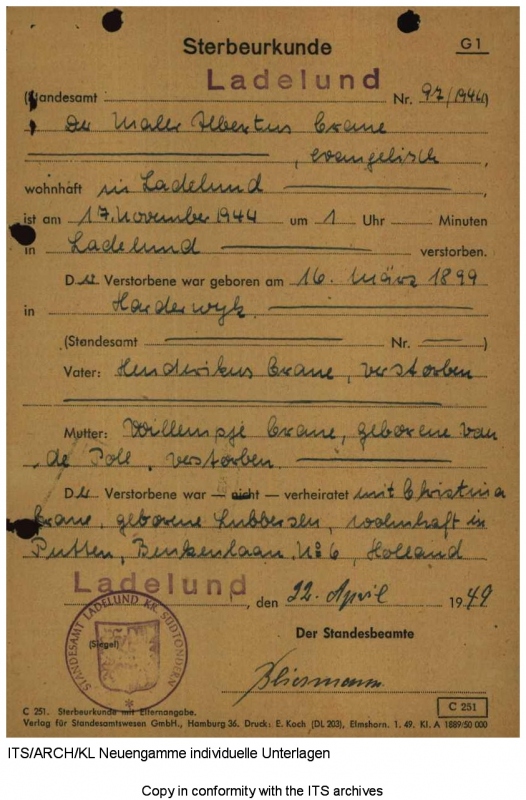 Sterbeurkunde
G 1
Ladelund
(Standesamt Nr. 97/1944)
Der Maler Albertus Crane
, evangelisch ,
wohnhaft in Ladelund ,
ist am 17. November 1944 um 1 Uhr Minuten
in Ladelund verstorben.
Der Verstorbene war geboren am 16. März 1899
in Harderwyk.
(Standesamt Nr. )
Vater: Henderikus Crane, verstorben
Mutter: Willempje Crane, geborene van
de Pole, verstorben.
Der Verstorbene war — nicht — verheiratet mit Christina
Crane, geborene Lubbersen, wohnhaft in
Putten, Benkenlaan, No 6, Holland
Ladelund, den 22. April 1949
Der Standesbeamte
(Siegel)
STANDESAMT LADELUND KR. SÜDTONDERN
C 251. Sterbeurkunde mit Elternangabe.
C 251
Verlag für Standesamtswesen GmbH., Hamburg 36. Druck: E. Koch (DL 203), Elmshorn. 1. 49. Kl. A 1889/50 000
ITS/ARCH/KL Neuengamme individuelle Unterlagen
Copy in conformity with the ITS archives